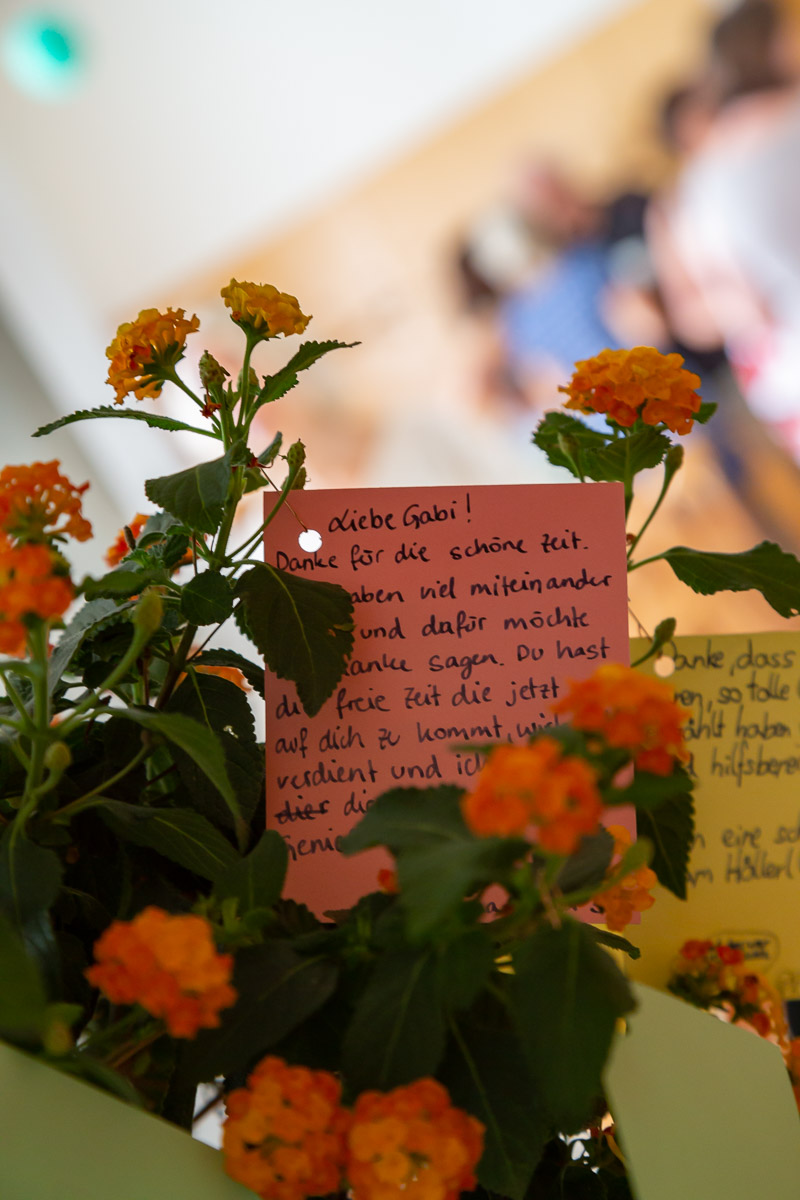 Liebe Gabi!
Danke für die schöne Zeit.
aben viel miteinander
und dafür möchte
anke sagen. Du hast
di freie Zeit die jetzt
auf dich zu kommt, wi
verdient und ic
dier die
Genie
Danke, dass
en, so tolle
ählt haben
d hilfsberei
n eine sc
am Höllerl